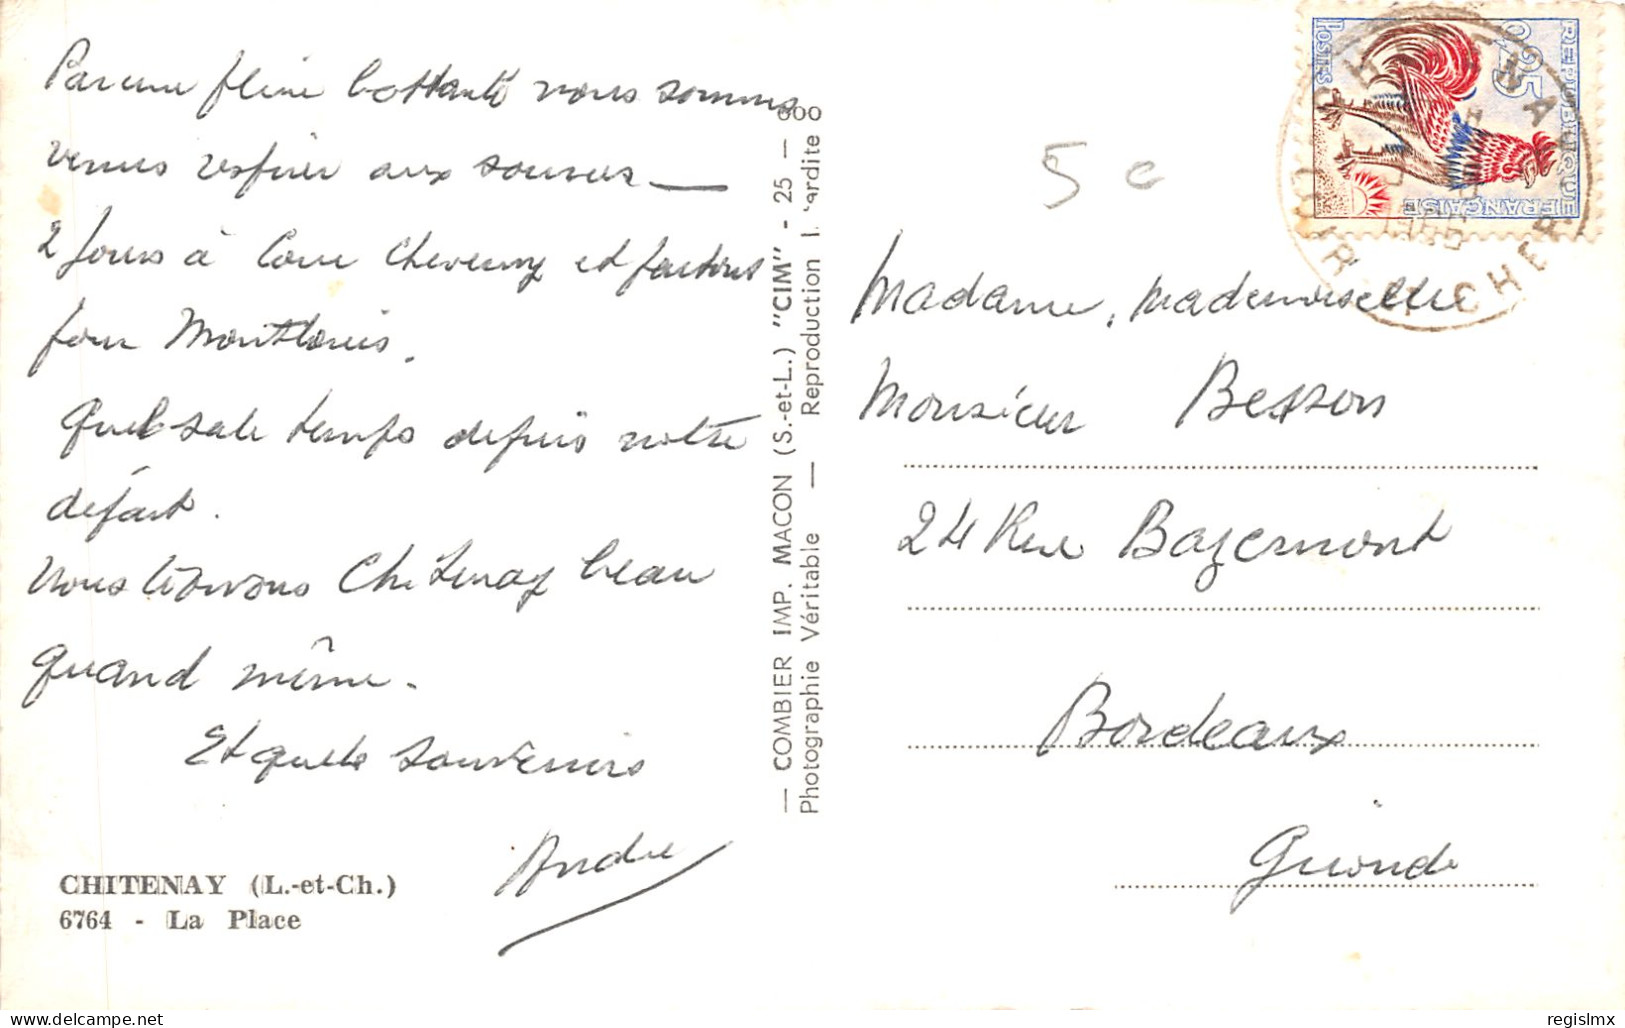 Par une pluie battante nous sommes
venus respirer aux sources —
2 jours à Cour Cheverny et partons
pour Montlouis.
Quel sale temps depuis notre
départ.
Nous trouvons Chitenay beau
quand même.
Et quels souvenirs
André
CHITENAY (L.-et-Ch.)
6764 - La Place
— COMBIER IMP. MACON (S.-et-L.) "CIM" - 25 —
Photographie Véritable — Reproduction
5 c
REPUBLIQUE
FRANÇAISE
0,25
POSTES
CHITENAY
LOIR ET CHER
Madame, Mademoiselle
Monsieur Besson
24 Rue Bazemont
Bordeaux
Gironde
regislmx
delcampe.net